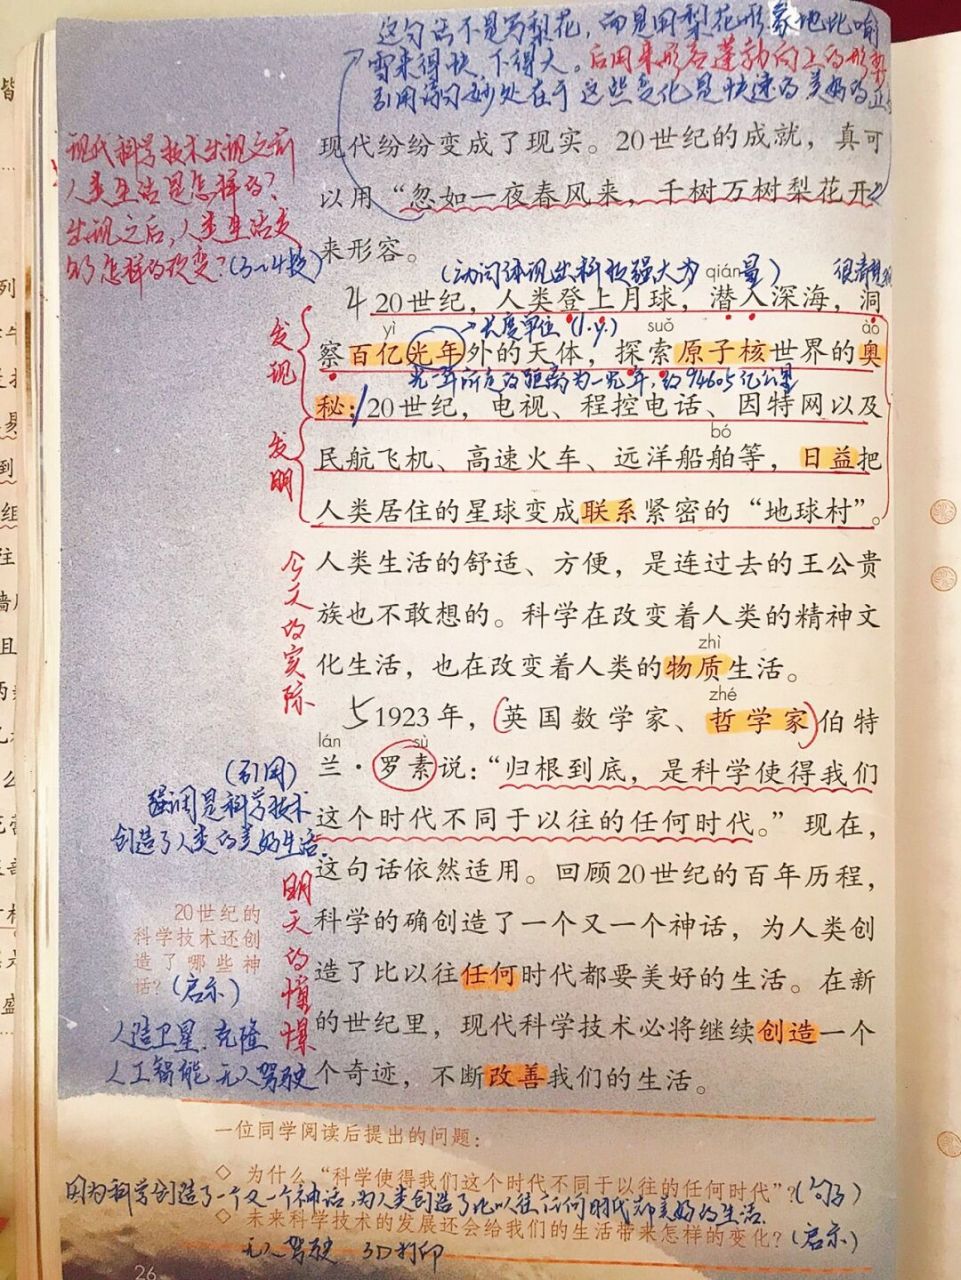 这句话不是写梨花，而是用梨花形象地比喻
雪来得快、下得大。后用来形容蓬勃向上的形势
引用诗句妙处在于这些变化是快速的美好的
现代纷纷变成了现实。20世纪的成就，真可
以用“忽如一夜春风来，千树万树梨花开”
来形容。
现代科学技术出现之前
人类生活是怎样的？
出现之后，人类生活发
的怎样的改变？(3~4段)
(动词体现出科技强大力量)
很清楚
qián
4 20世纪，人类登上月球，潜入深海，洞
yì
长度单位(l.y.)
suǒ
ào
察百亿光年外的天体，探索原子核世界的奥
光一年所走的距离为一光年，约94605亿公里
秘；20世纪，电视、程控电话、因特网以及
bó
民航飞机、高速火车、远洋船舶等，日益把
人类居住的星球变成联系紧密的“地球村”。
发现
发明
人类生活的舒适、方便，是连过去的王公贵
族也不敢想的。科学在改变着人类的精神文
zhì
化生活，也在改变着人类的物质生活。
今天的实际
zhé
5 1923年，(英国数学家、哲学家)伯特
lán
sù
兰·罗素说：“归根到底，是科学使得我们
这个时代不同于以往的任何时代。”现在，
这句话依然适用。回顾20世纪的百年历程，
科学的确创造了一个又一个神话，为人类创
造了比以往任何时代都要美好的生活。在新
的世纪里，现代科学技术必将继续创造一个
个奇迹，不断改善我们的生活。
(引用)
强调是科学技术
创造了人类的美好生活.
明天的憧憬
20世纪的
科学技术还创
造了哪些神
话？(启示)
人造卫星.克隆
人工智能 无人驾驶
一位同学阅读后提出的问题：
◇ 为什么“科学使得我们这个时代不同于以往的任何时代”？(内容)
因为科学创造了一个又一个神话，为人类创造了比以往任何时代都美好的生活.
◇ 未来科学技术的发展还会给我们的生活带来怎样的变化？(启示)
无人驾驶 3D打印
26